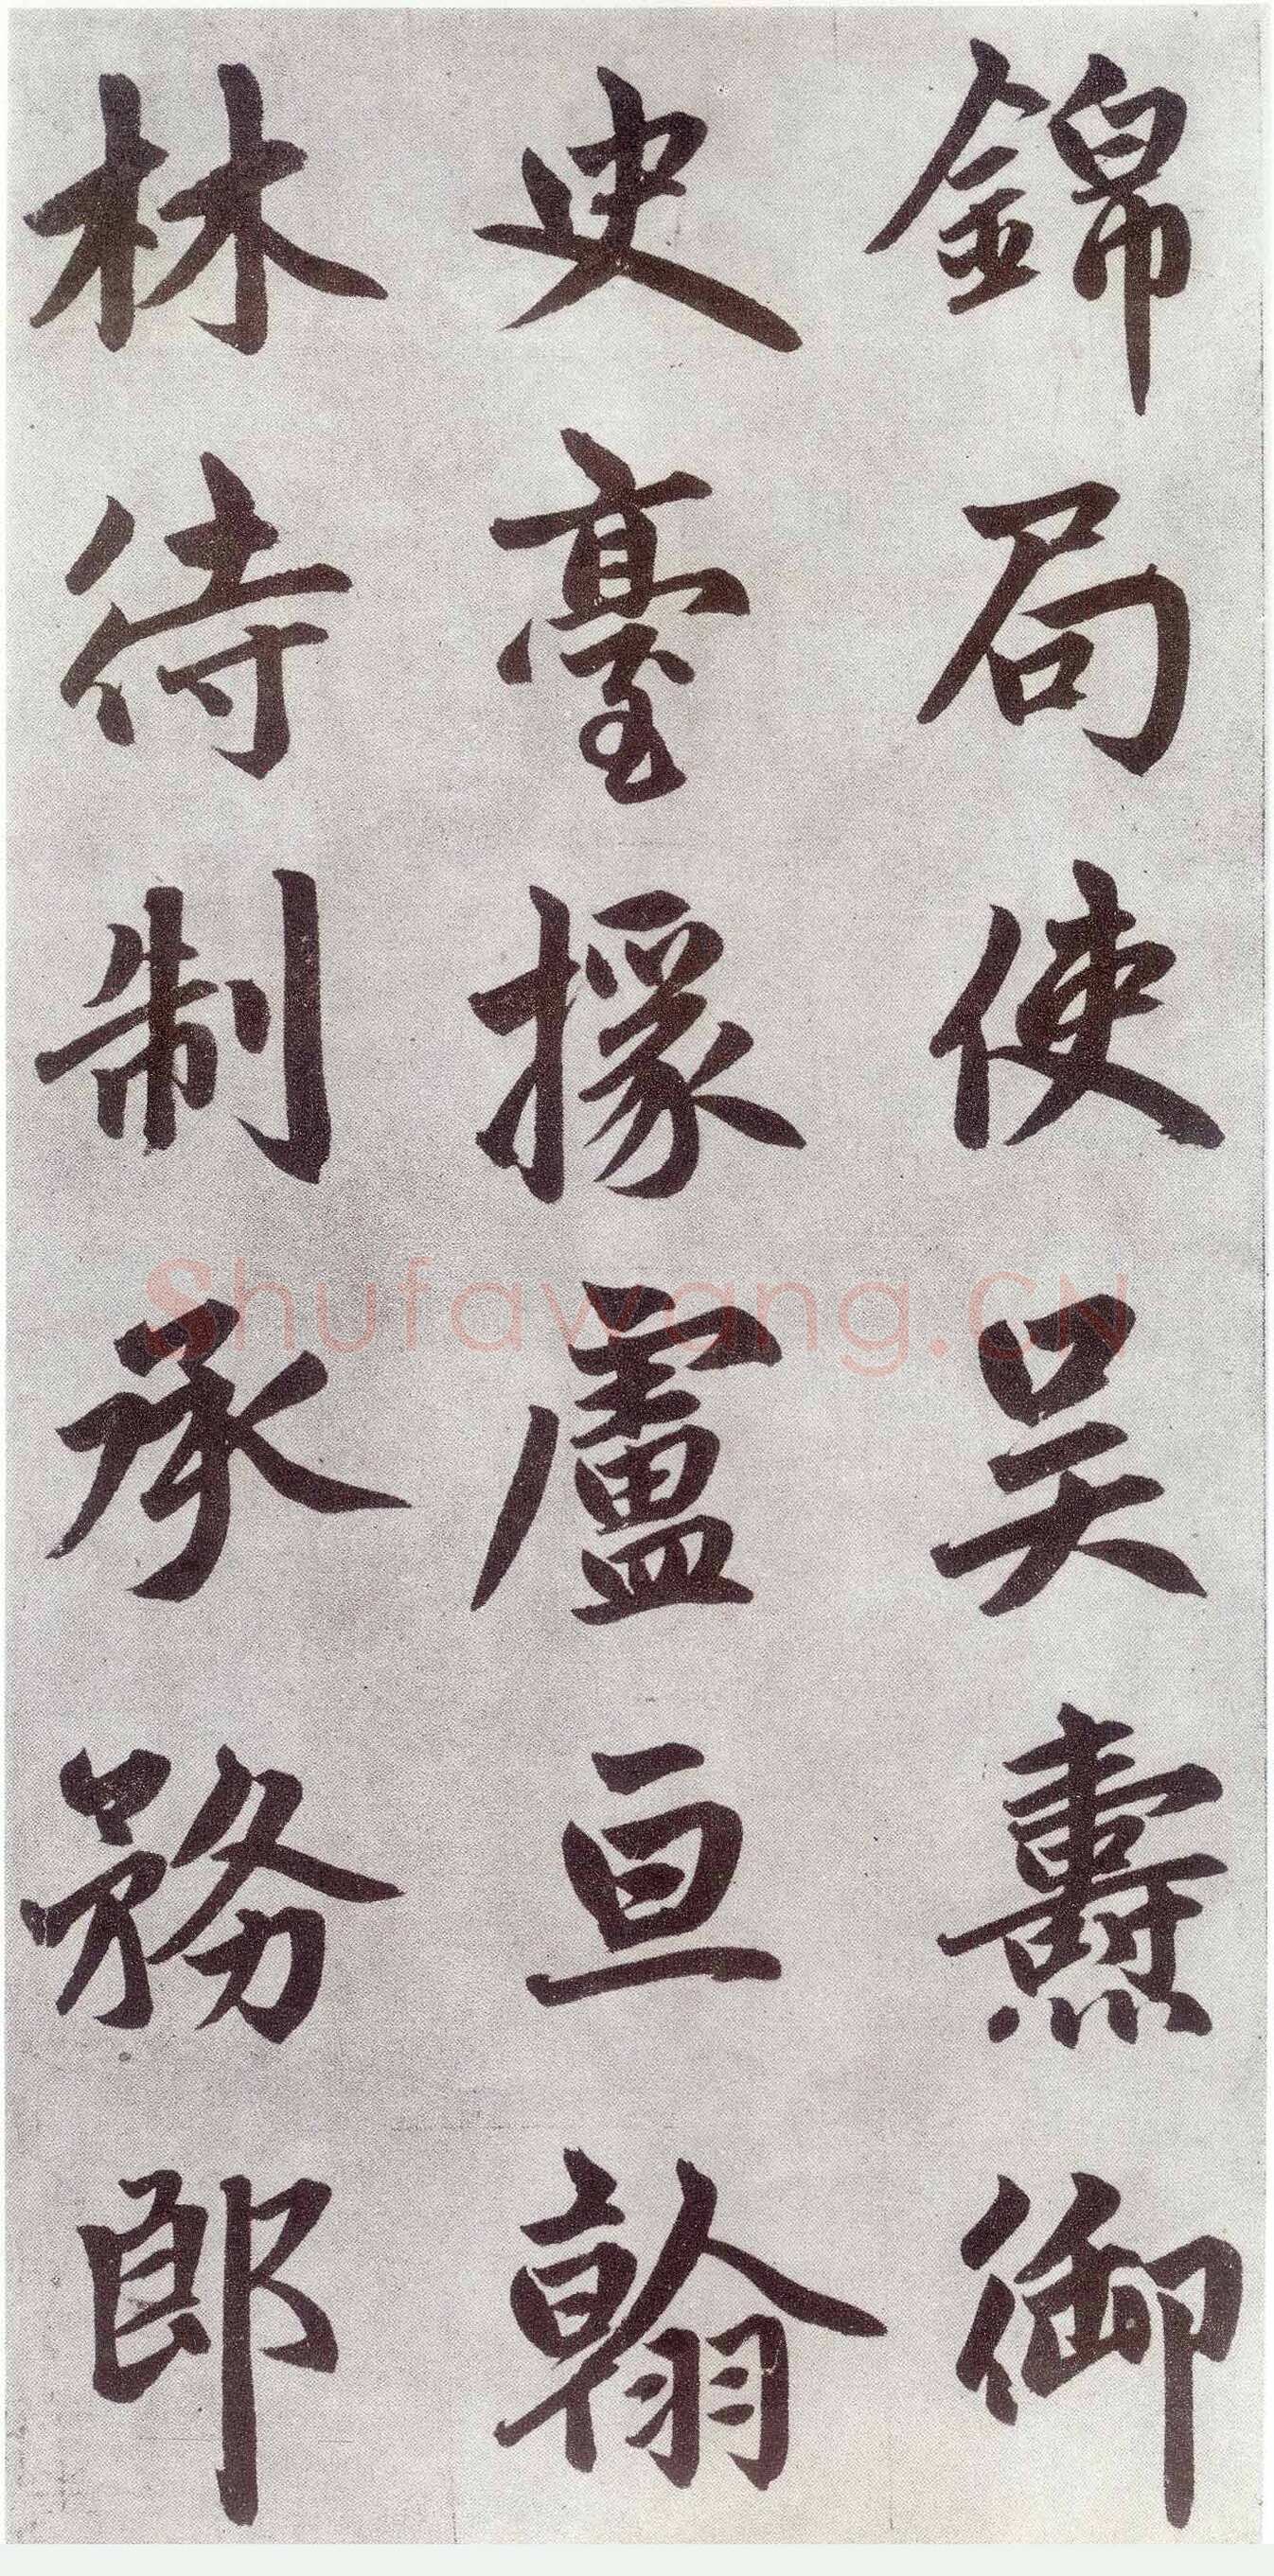 錦局使吴燾御
史臺掾盧亘翰
林待制承務郎
Shufawang.CN